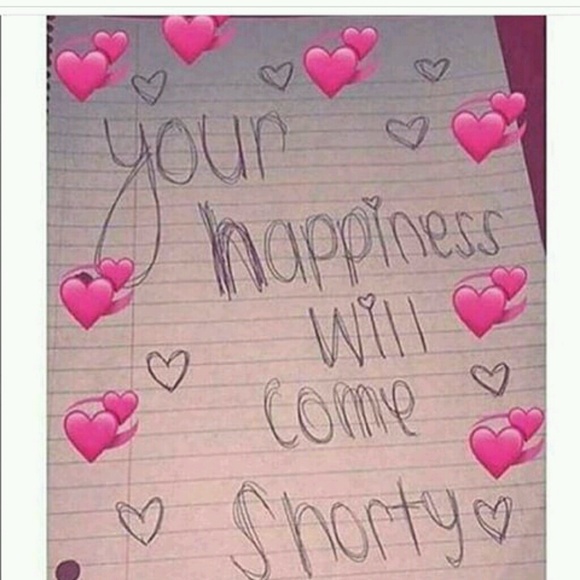 your
happiness
will
come
Shorty